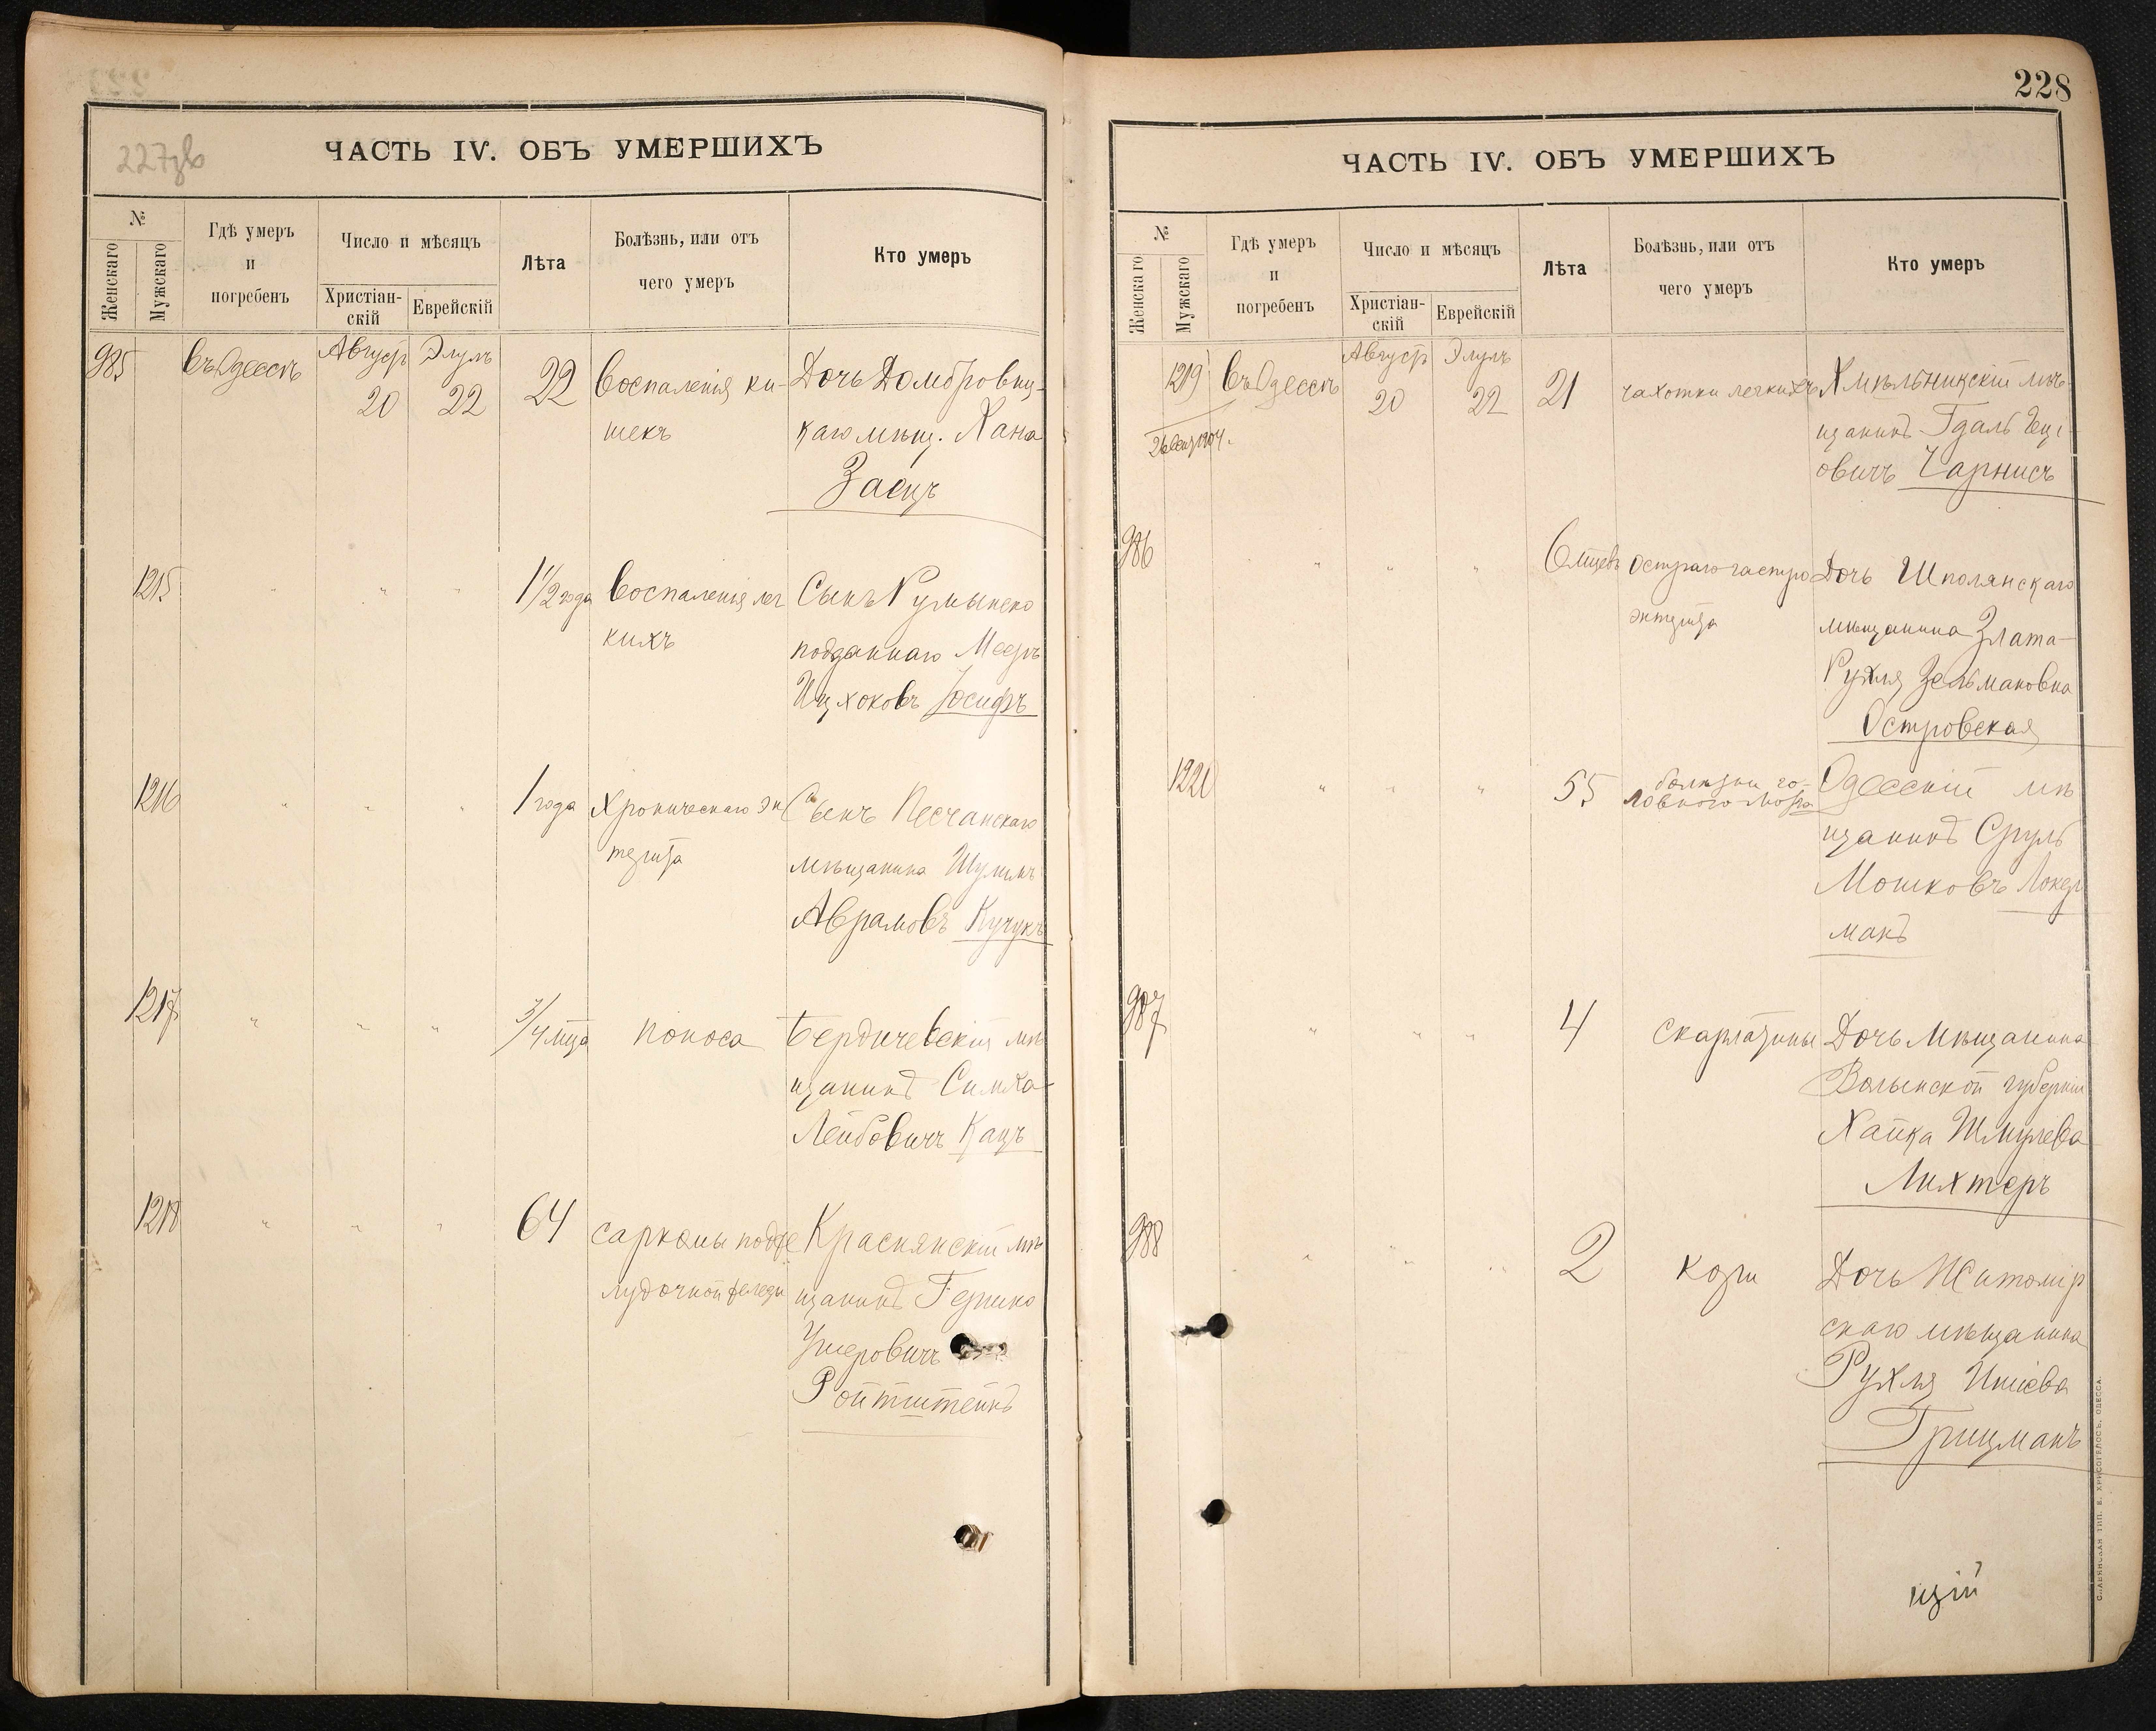 227зв
ЧАСТЬ IV. ОБЪ УМЕРШИХЪ
№
Женскаго
Мужскаго
Гдѣ умеръ
и
погребенъ
Число и мѣсяцъ
Христіан-
скій
Еврейскій
Лѣта
Болѣзнь, или отъ
чего умеръ
Кто умеръ
985 въ Одессѣ Август Элулъ 22 воспаленія ки- Дочь Домбровиц-
20 22 шекъ каго мѣщ. Хана
Заецъ
1215 " " " 1 1/2 года воспаленія лег Сынъ Румынско
кихъ подданнаго Мееръ
Ицхоковъ Іосифъ
1216 " " " 1 года хроническаго эн Сынъ Песчанскаго
терита мѣщанина Шулимъ
Аврамовъ Кучукъ
1217 " " " 3/4 мца поноса Бердичевскій мѣ
щанинъ Симха
Лейбовичъ Кацъ
1218 " " " 64 саркомы подже Краснянскій мѣ
лудочной желези щанинъ Гершко
Ушеровичъ
Ройтштейнъ
228
ЧАСТЬ IV. ОБЪ УМЕРШИХЪ
№
Женскаго
Мужскаго
Гдѣ умеръ
и
погребенъ
Число и мѣсяцъ
Христіан-
скій
Еврейскій
Лѣта
Болѣзнь, или отъ
чего умеръ
Кто умеръ
1219 въ Одессѣ Август Элулъ 21 чахотки легкихъ Хмѣльникскій мѣ-
20 22 щанинъ Гдаль
26 1904. овичъ Чарнисъ
986 " " " 6 мцевъ остраго гастро Дочь Шполянскаго
энтерита мѣщанина Злата-
Рухля Зельмановна
Островская
1220 " " " 55 болѣзни го- Одесскій мѣ
ловного мозга щанинъ Сруль
Мошковъ Локер
манъ
987 " " " 4 скарлатины Дочь мѣщанина
Волынской губерніи
Хайка Шмулева
Лихтеръ
988 " " " 2 кори Дочь Житомир
скаго мѣщанина
Рухля Ишіева
Грицманъ
щій
СЛАВЯНСКАЯ ТИП. Е. ХРИСОГЕЛОСЪ, ОДЕССА.